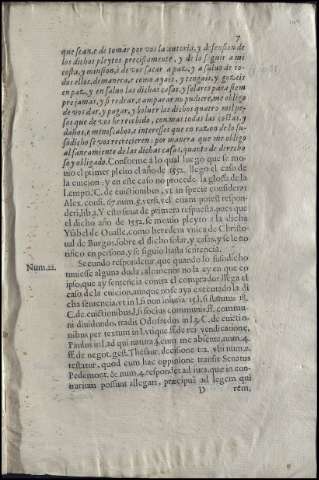 7
que sean, e de tomar por vos la autoria, y defension de
los dichos pleytos precisamente, y de lo seguir a mi
costa, y mission, e de vos sacar a paz, y a saluo de to-
dos ellos, de manera, como ayais, y tengais, y gozeis
en paz, y en saluo las dichas casas, y solares para siem
pre jamas, y si redrar, e amparar no pudiere, me obligo
de vos dar, y pagar, y boluer los dichos quatro mil
que de vos he recebido, con mas todas las costas, y
daños, e menoscabos, e interesses que en razon de lo su-
sodicho se vos recrecieren: por manera que me obligo
al saneamiento de las dichas casas, quanto de derecho
soy obligado. Conforme a lo qual luego que se mo-
uio el primer pleito el año de 1552. llegò el caso de
la euicion: y en este caso no procede la glossa de la
l. C. de euictionibus, vt in specie considerat
Alex. cons. 67. num. 5. vers. vel etiam potest respon-
deri, lib. Y esto sirua de primera respuesta, pues que
el dicho año de 1552. se mouio pleyto à la dicha
Ysabel de Oualle, como heredera vnica de Christo-
ual de Burgos, sobre el dicho solar, y casas, y se le no-
tificò en persona, y se siguio hasta sentencia.
Num. 22. Secundo respondetur, que quando lo susodicho
tuuiesse alguna duda, alomenos no la ay en que eo
ipso, que ay sentencia contra el comprador llega el
caso de la euicion, aunque no se aya executado la di-
cha sentencia, vt in l.
C. de euictionibus, l. si socius communi,
diuidundo, tradit Odofredus in l. 3. C. de euictio-
nibus per textum in l. vtique ff. de rei vendicatione,
Paulus in l. ad qui natura §. cum me absente, num. 4.
ff. de negot. gest. Thesaur. decisione vbi num. 2.
testatur, quod cum hac opinione transit Senatus
Pedemont. & num. 4. respondet ad iura, que in con-
trarium possunt allegari, præcipuè ad legem qui
D rem,